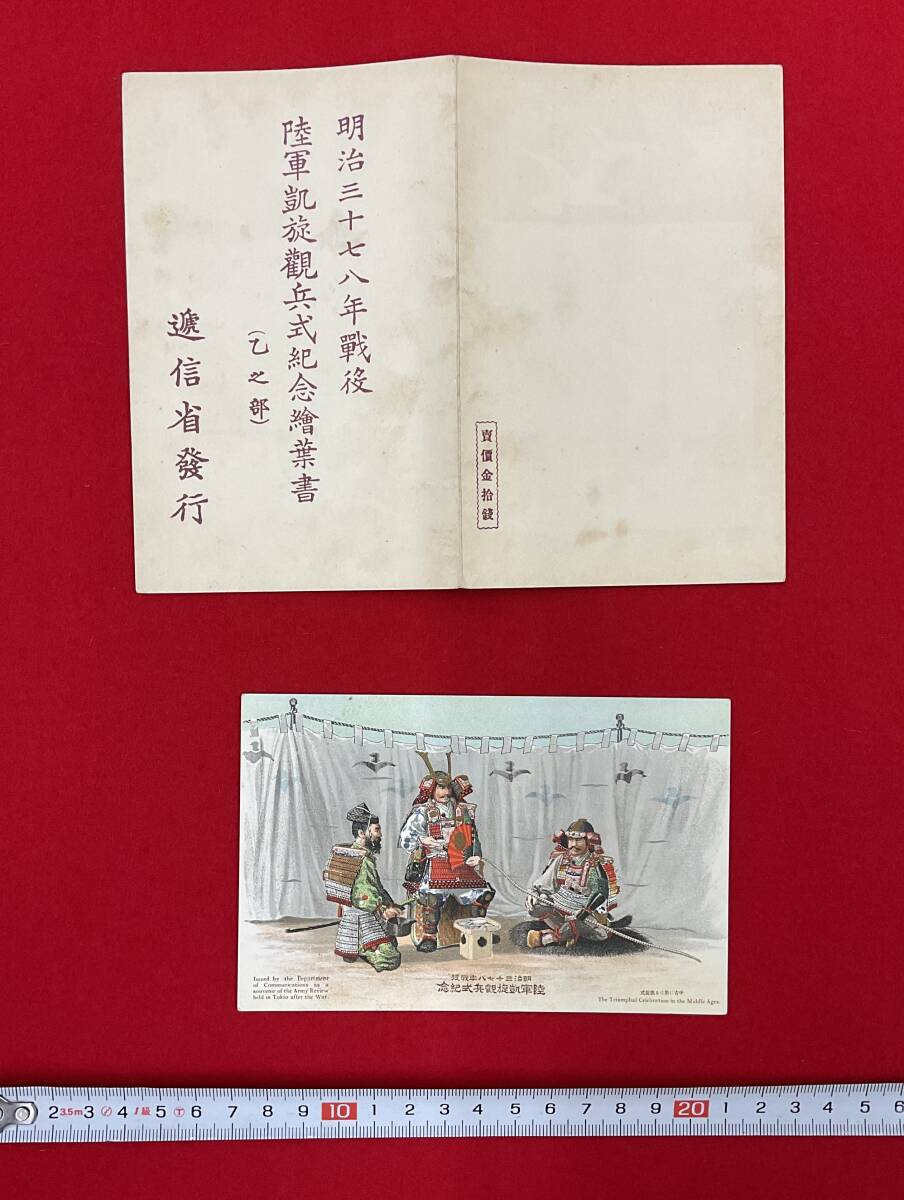 明治三十七八年戰役
陸軍凱旋觀兵式紀念繪葉書
(乙之部)
遞信省發行
賣價金拾錢
明治三十七八年戰役
陸軍凱旋觀兵式紀念
Issued by the Department
of Communications as a
souvenir of the Army Review
held in Tokio after the War.
The Triumphal Celebration in the Middle Ages.
2 3.5m 3 4 1級 5 6 7 8 9 10 1 2 3 4 5 6 7 8 9 20 1 2 3 4 5 6